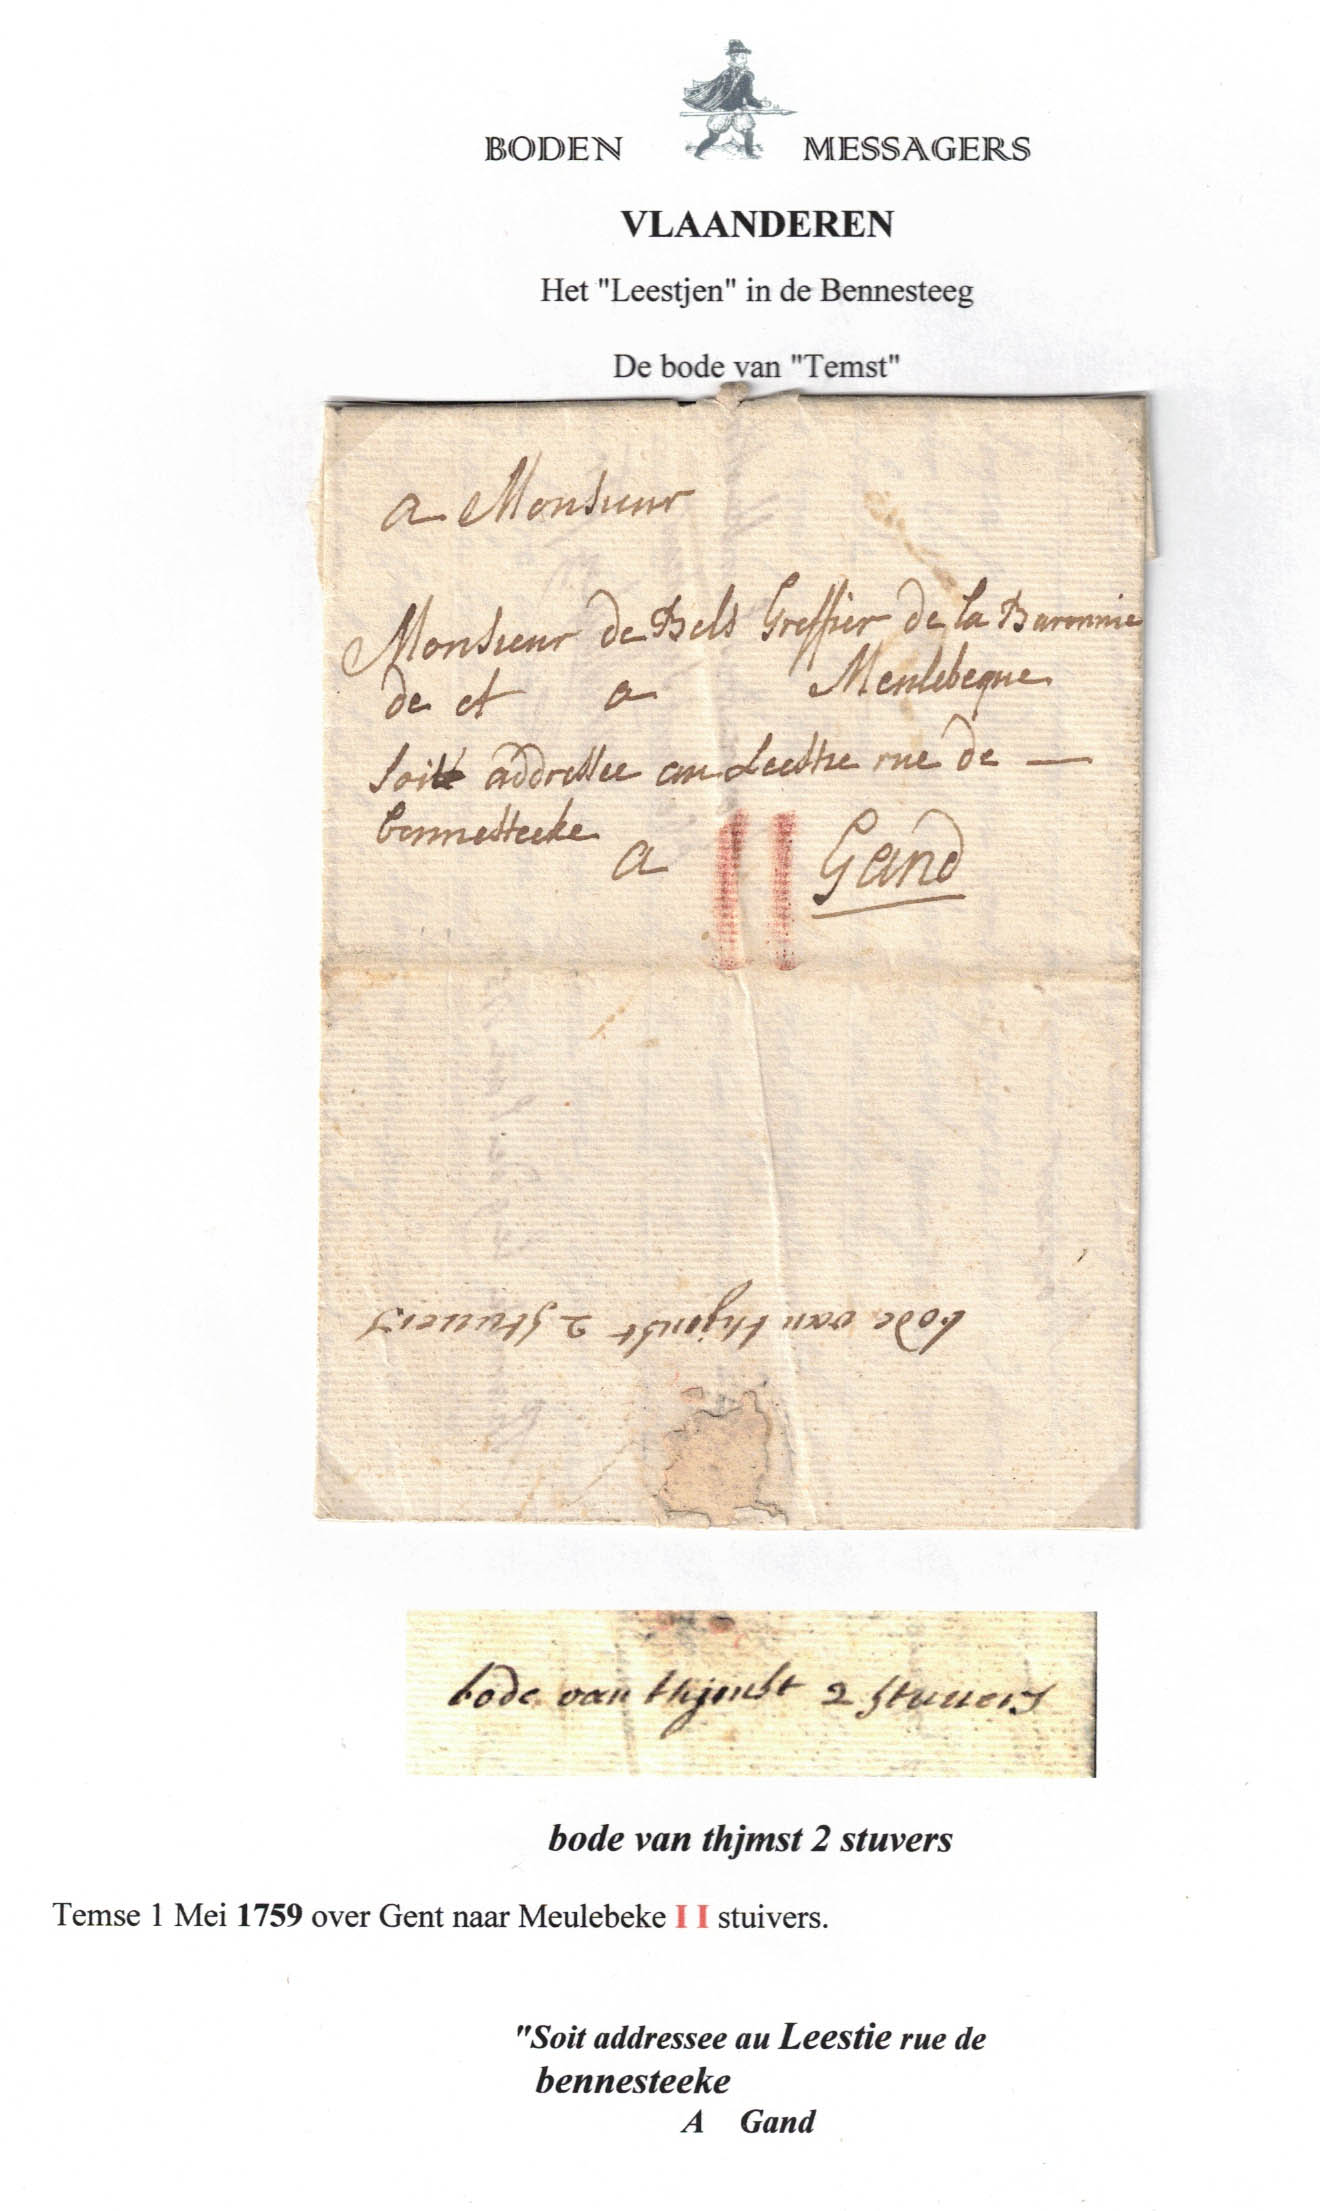 BODEN MESSAGERS
VLAANDEREN
Het "Leestjen" in de Bennesteeg
De bode van "Temst"
a Monsieur
Monsieur de Bels Greffier de la Baronnie
de et a Meulebeque
soit addressee au Leestie rue de —
bennesteeke
a II Gand
bode van thjmst 2 stuvers
bode van thjmst 2 stuvers
bode van thjmst 2 stuvers
Temse 1 Mei 1759 over Gent naar Meulebeke I I stuivers.
"Soit addressee au Leestie rue de
bennesteeke
A Gand